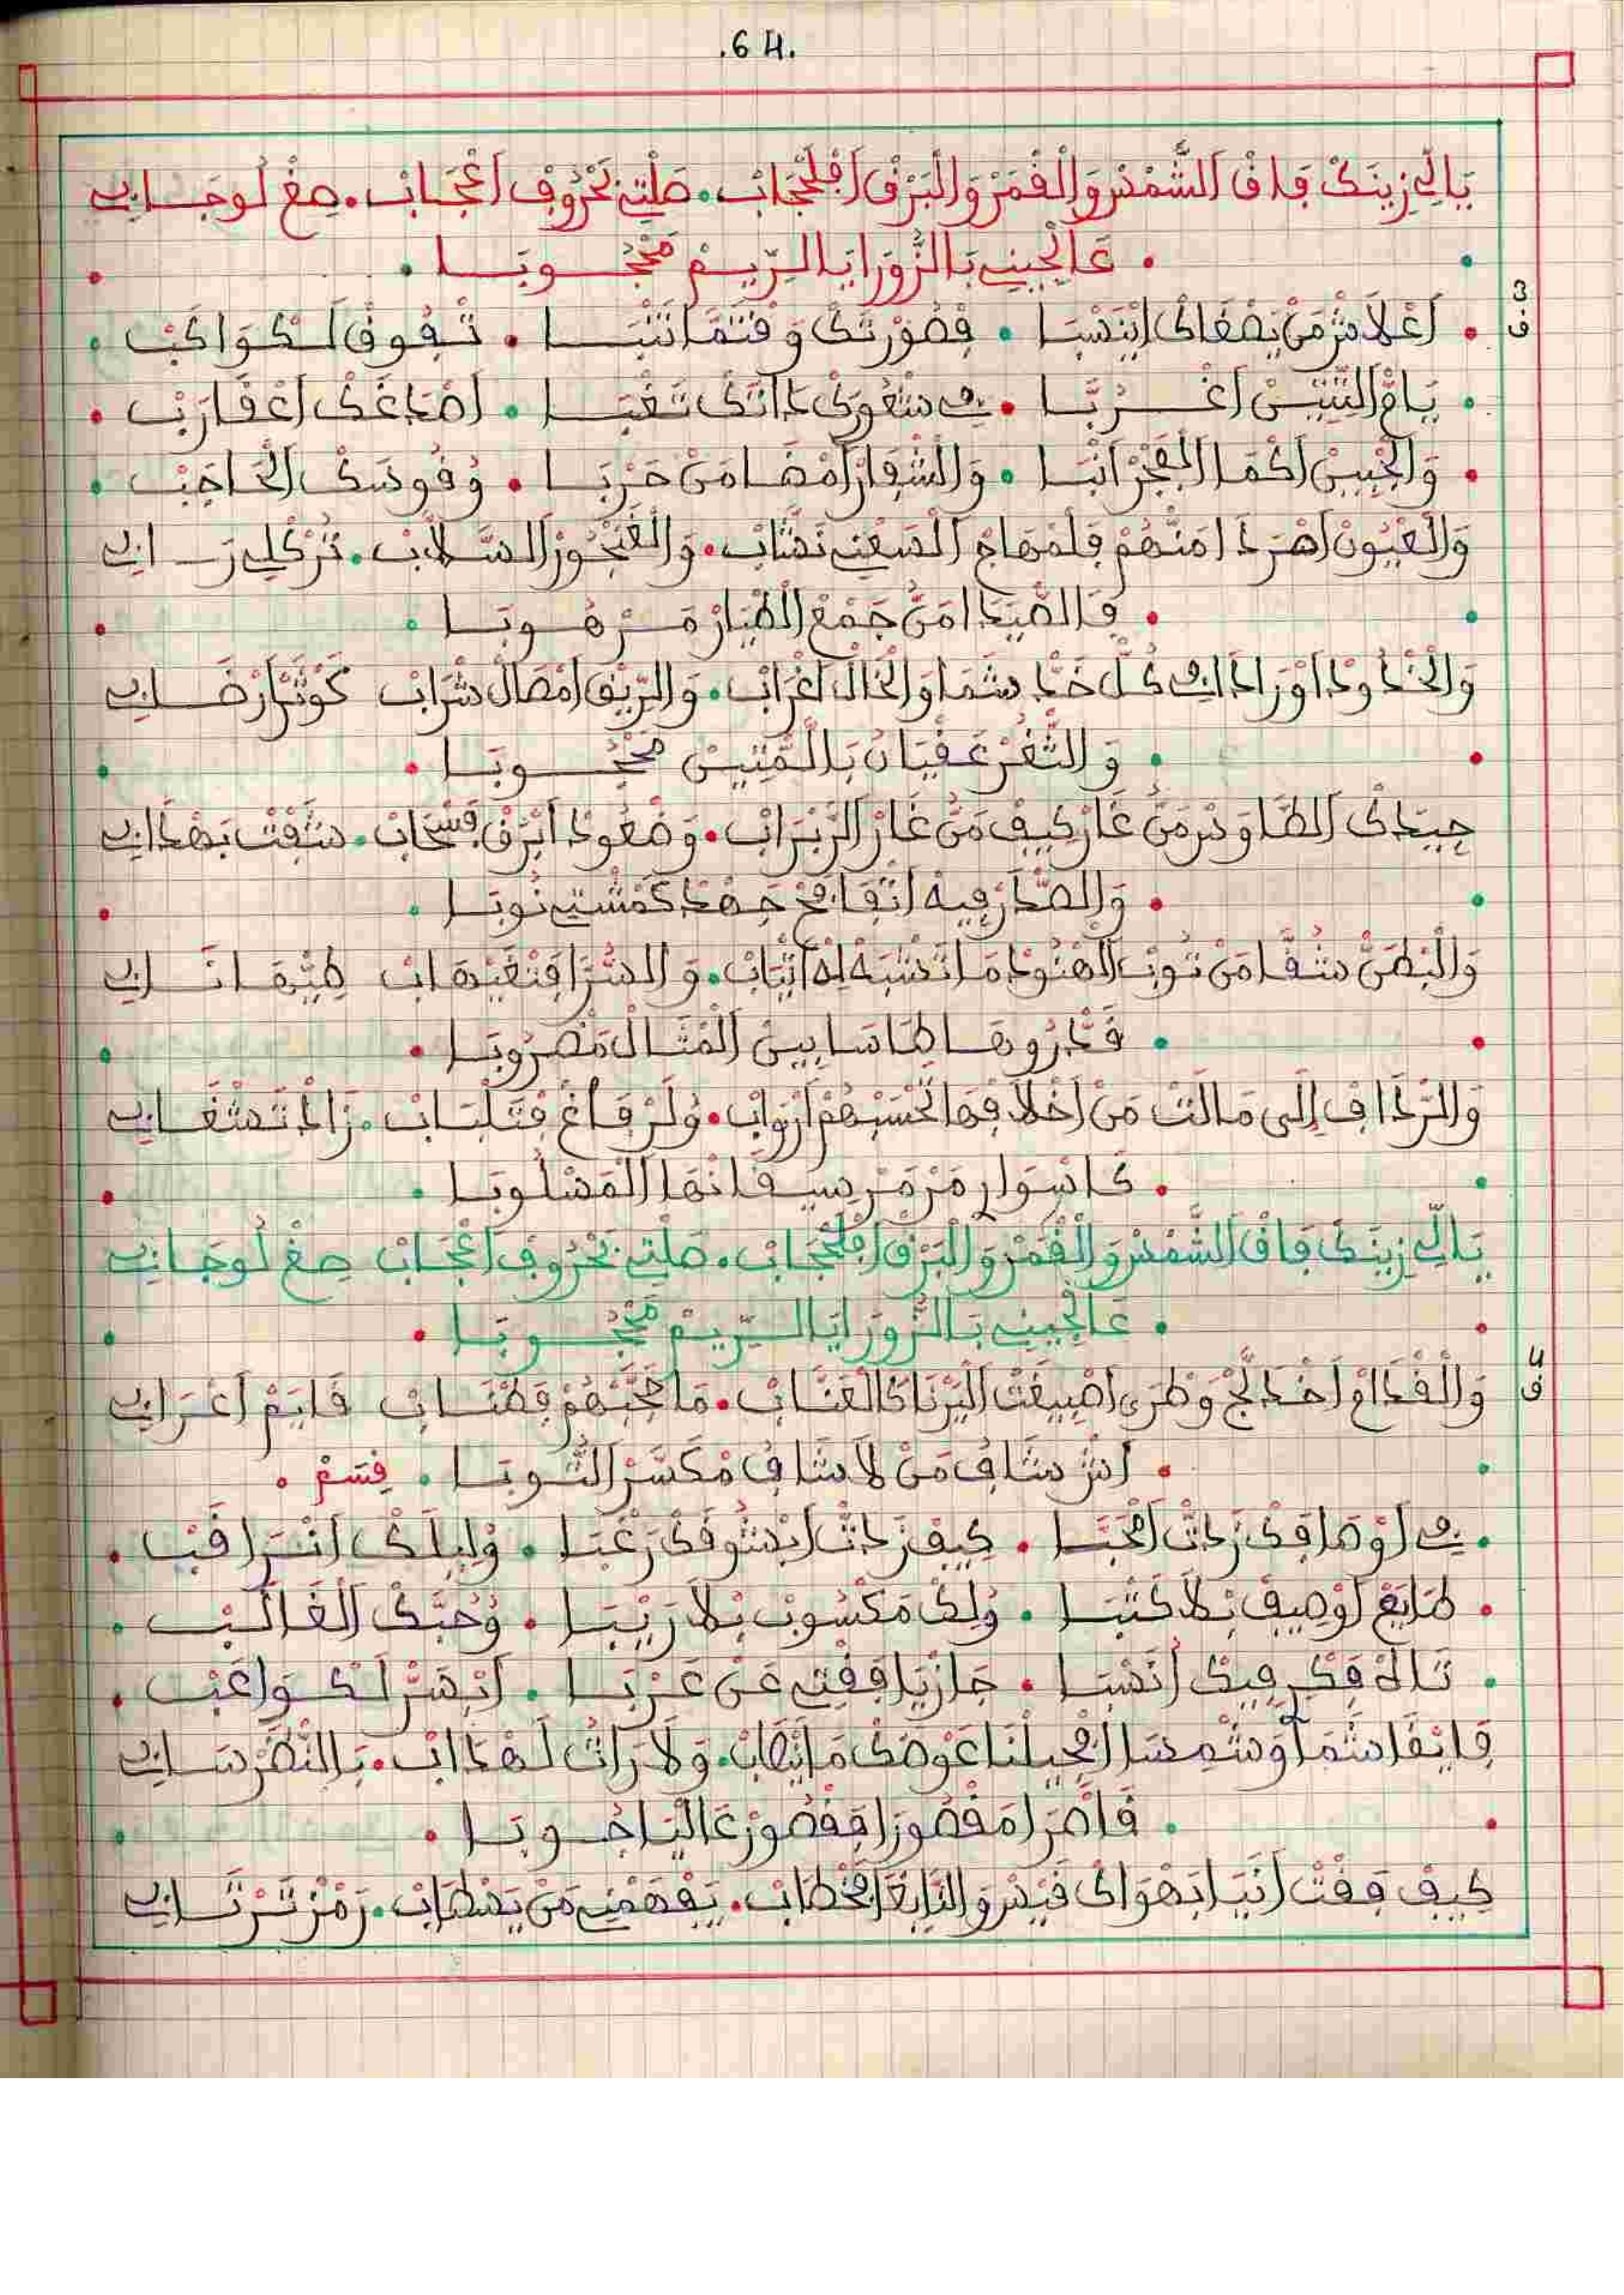 .64.
يَالِّي زِينَكْ فَاقْ اَلشَّمْسْ وَالْقْمَرْ وَالْبَرْقْ اَفْلَحْجَابْ. صَلْتِي بَحْرُوفْ اَعْجَابْ. صِغْ لَوجَابِي
. عَالْجِينِي بَالزُّورَا يَا الرِّيمْ مَحْجُوبَا .
3
ف
. اَعْلَاشْ مَنْ يَصْغَاكْ اِينَسْبَا . فِصُورْتَكْ وَقْتَمَّا نَتْبَا . تْفُوقْ لَكْوَاكَبْ .
. يَاقْ التِّيتْ اَغْرُبَّا . فِي سْعُودَكْ تَعْبَا . اَصْدَاغَكْ اَعْقَارَبْ .
. وَالْجْبِينْ اَكْمَا الْفْجَرْ اَنْبَا . وَالشْفَارْ اَمْضَا مَنْ حَرْبَا . وُقُوسَكْ الْحَاجَبْ .
وَالْعْيُونْ اَهْرَدْ اَمَنْهُمْ فَلَمْهَامْ اَلْصَعْبِي نَشَّابْ. وَالْغَنْجُورْ السَّلَّابْ. تُرْكْلِي رَابِي
. فَالصِّيدَا مَنْ جَمْعْ الْطْيَارْ مَرْهُوبَا .
وَالْخْدُودْ اَوْرَادْ فِي كُلّْ خَدّْ شَمَا وَالْخَالْ اَغْرَابْ. وَالرِّيقْ اَمْصَالْ شْرَابْ كَوْثَرْ اَرْضَابِي
. وَالثَّغْرْ عَقْيَانْ بَالْمِّيسْ مَحْجُوبَا .
جِيدَكْ الطَّاوَسْ مَنْ غَارْ كِيفْ مَنْ غَارْ الزَّبْرَابْ. وَضْعُودْ اَبْرَقْ فَسْحَابْ. سَبْقَتْ بَهْدَابِي
. وَالصّْدَرْ فِيهْ اَتْفَافَحْ جَهْدْ كَمْشْتِي نُوبَا .
وَالْبْطَنْ شُقَّا مَنْ تُوبْ الْهْنُودْ مَا تَشْبَهْ لِهْ اَثْيَابْ. وَالسُّرَّا فَتْغَيْهَابْ طِيّْهَا نَابِي
. قَدّْرُوهَا طَاسَا بِينْ اَلْمْثَالْ مَضْرُوبَا .
وَالرّْدَافْ اِلَى مَالَتْ مَنْ اَخْلَافْهَا تَحْسَبْهُمْ اَرْوَابْ. وُلَرْفَاغْ فْتَلْبَابْ. زَادْ تَشْغَابِي
. كَاسْوَارِ مَرْمَرْ سِيقَانْهَا الْمَسْلُوبَا .
يَالِّي زِينَكْ فَاقْ اَلشَّمْسْ وَالْقْمَرْ وَالْبَرْقْ اَفْلَحْجَابْ. صَلْتِي بَحْرُوفْ اَعْجَابْ صِغْ لَوجَابِي
. عَالْجِينِي بَالزُّورَا يَا الرِّيمْ مَحْجُوبَا .
4
ف
وَالْقْدَامْ اَخْدَلَّجْ وَطْرَى اَصْبِيغَتْ الْبَرْنَا كَالْعَنَّابْ. مَا حَجَّبْهُمْ قَطَّابْ قَايَمْ اَعْرَابِي
. اَشْ شَافْ مَنْ لَا شَافْ مْكَسَّرْ الثُّوبَا . قِسَمْ .
. فِي اَوْصَافَكْ زَدْتْ اَمْحَبَّا . كِيفْ زَدْتْ اَبْشُوقَكْ رَغْبَا . وُلِيلَكْ اَنْرَاقَبْ .
. طَايَعْ اَوْصِيفْ بْلَا كَتْبَا . وُلِكْ مَكْسُوبْ بْلَا رِيبَا . وُحُبَّكْ الْغَالَبْ .
. تَاهْ فَكْرِي فِيكْ اَنَسْبَا . جَازْيَا فَقْتِي عَنْ عَزْبَا . اَبْهَرْ لَكْوَاعَبْ .
فَايْقَا شَمَا اَوْشَمْسَا اَفْجِيلْنَا عَوْضَكْ مَا يَنْصَابْ. وَلَا رَاتْ لَهْدَابْ. بَالنّْظَرْ سَابِي
. قَاصْرَا مَقْصُورَا فَقْصُورْ عَالْيَا حُوبَا .
كِيفْ فَقْتْ اَنَايَا بَهْوَاكْ قَيْسْ وَالنَّابْغَا فَخْطَابْ. يَفْهَمْنِي مَنْ يَسْطَابْ. رَمْزْ تَرْتَابِي